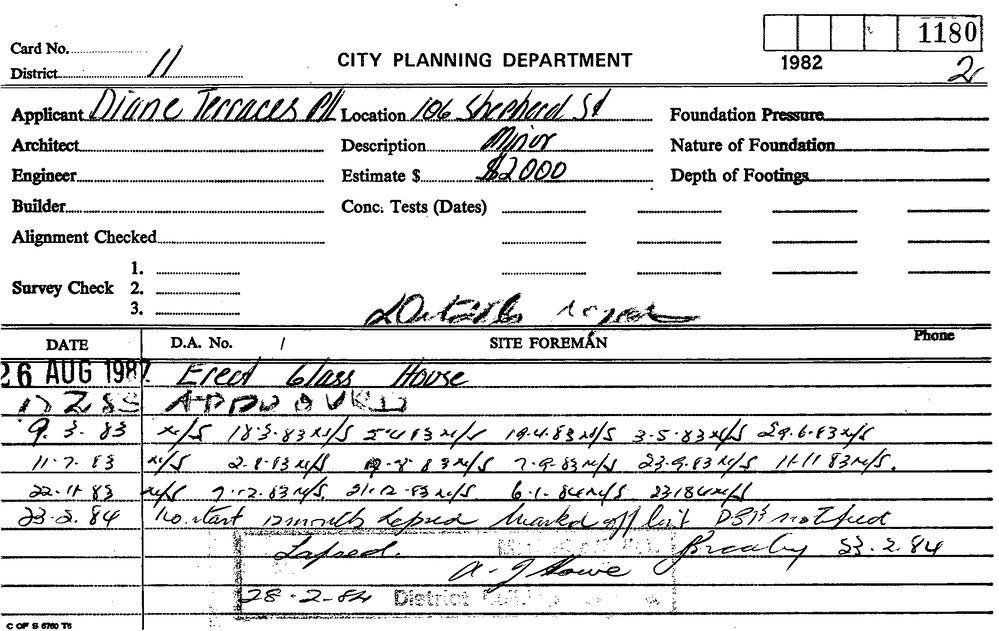 Card No. 1180
District 11 CITY PLANNING DEPARTMENT 1982 2
Applicant Diane Terraces P/L Location 106 Shepherd St Foundation Pressure
Architect Description Minor Nature of Foundation
Engineer Estimate $ $2000 Depth of Footings
Builder Conc. Tests (Dates)
Alignment Checked
1.
Survey Check 2.
3.
DATE D.A. No. / SITE FOREMAN Phone
26 AUG 1982 Erect Glass House
APPROVED
9.3.83 N/S 18.3.83 N/S 5.4.83 N/S 19.4.83 N/S 3.5.83 N/S 29.6.83 N/S
11.7.83 N/S 2.8.83 N/S 8.83 N/S 7.9.83 N/S 23.9.83 N/S 11.11.83 N/S.
22.11.83 N/S 7.12.83 N/S 21.12.83 N/S 6.1.84 N/S 23.1.84 N/S
23.2.84 No start 12 months lapsed Marked off list notified
Lapsed. 23.2.84
A. J Howe
28.2.84 District
C OF S 6760 T6